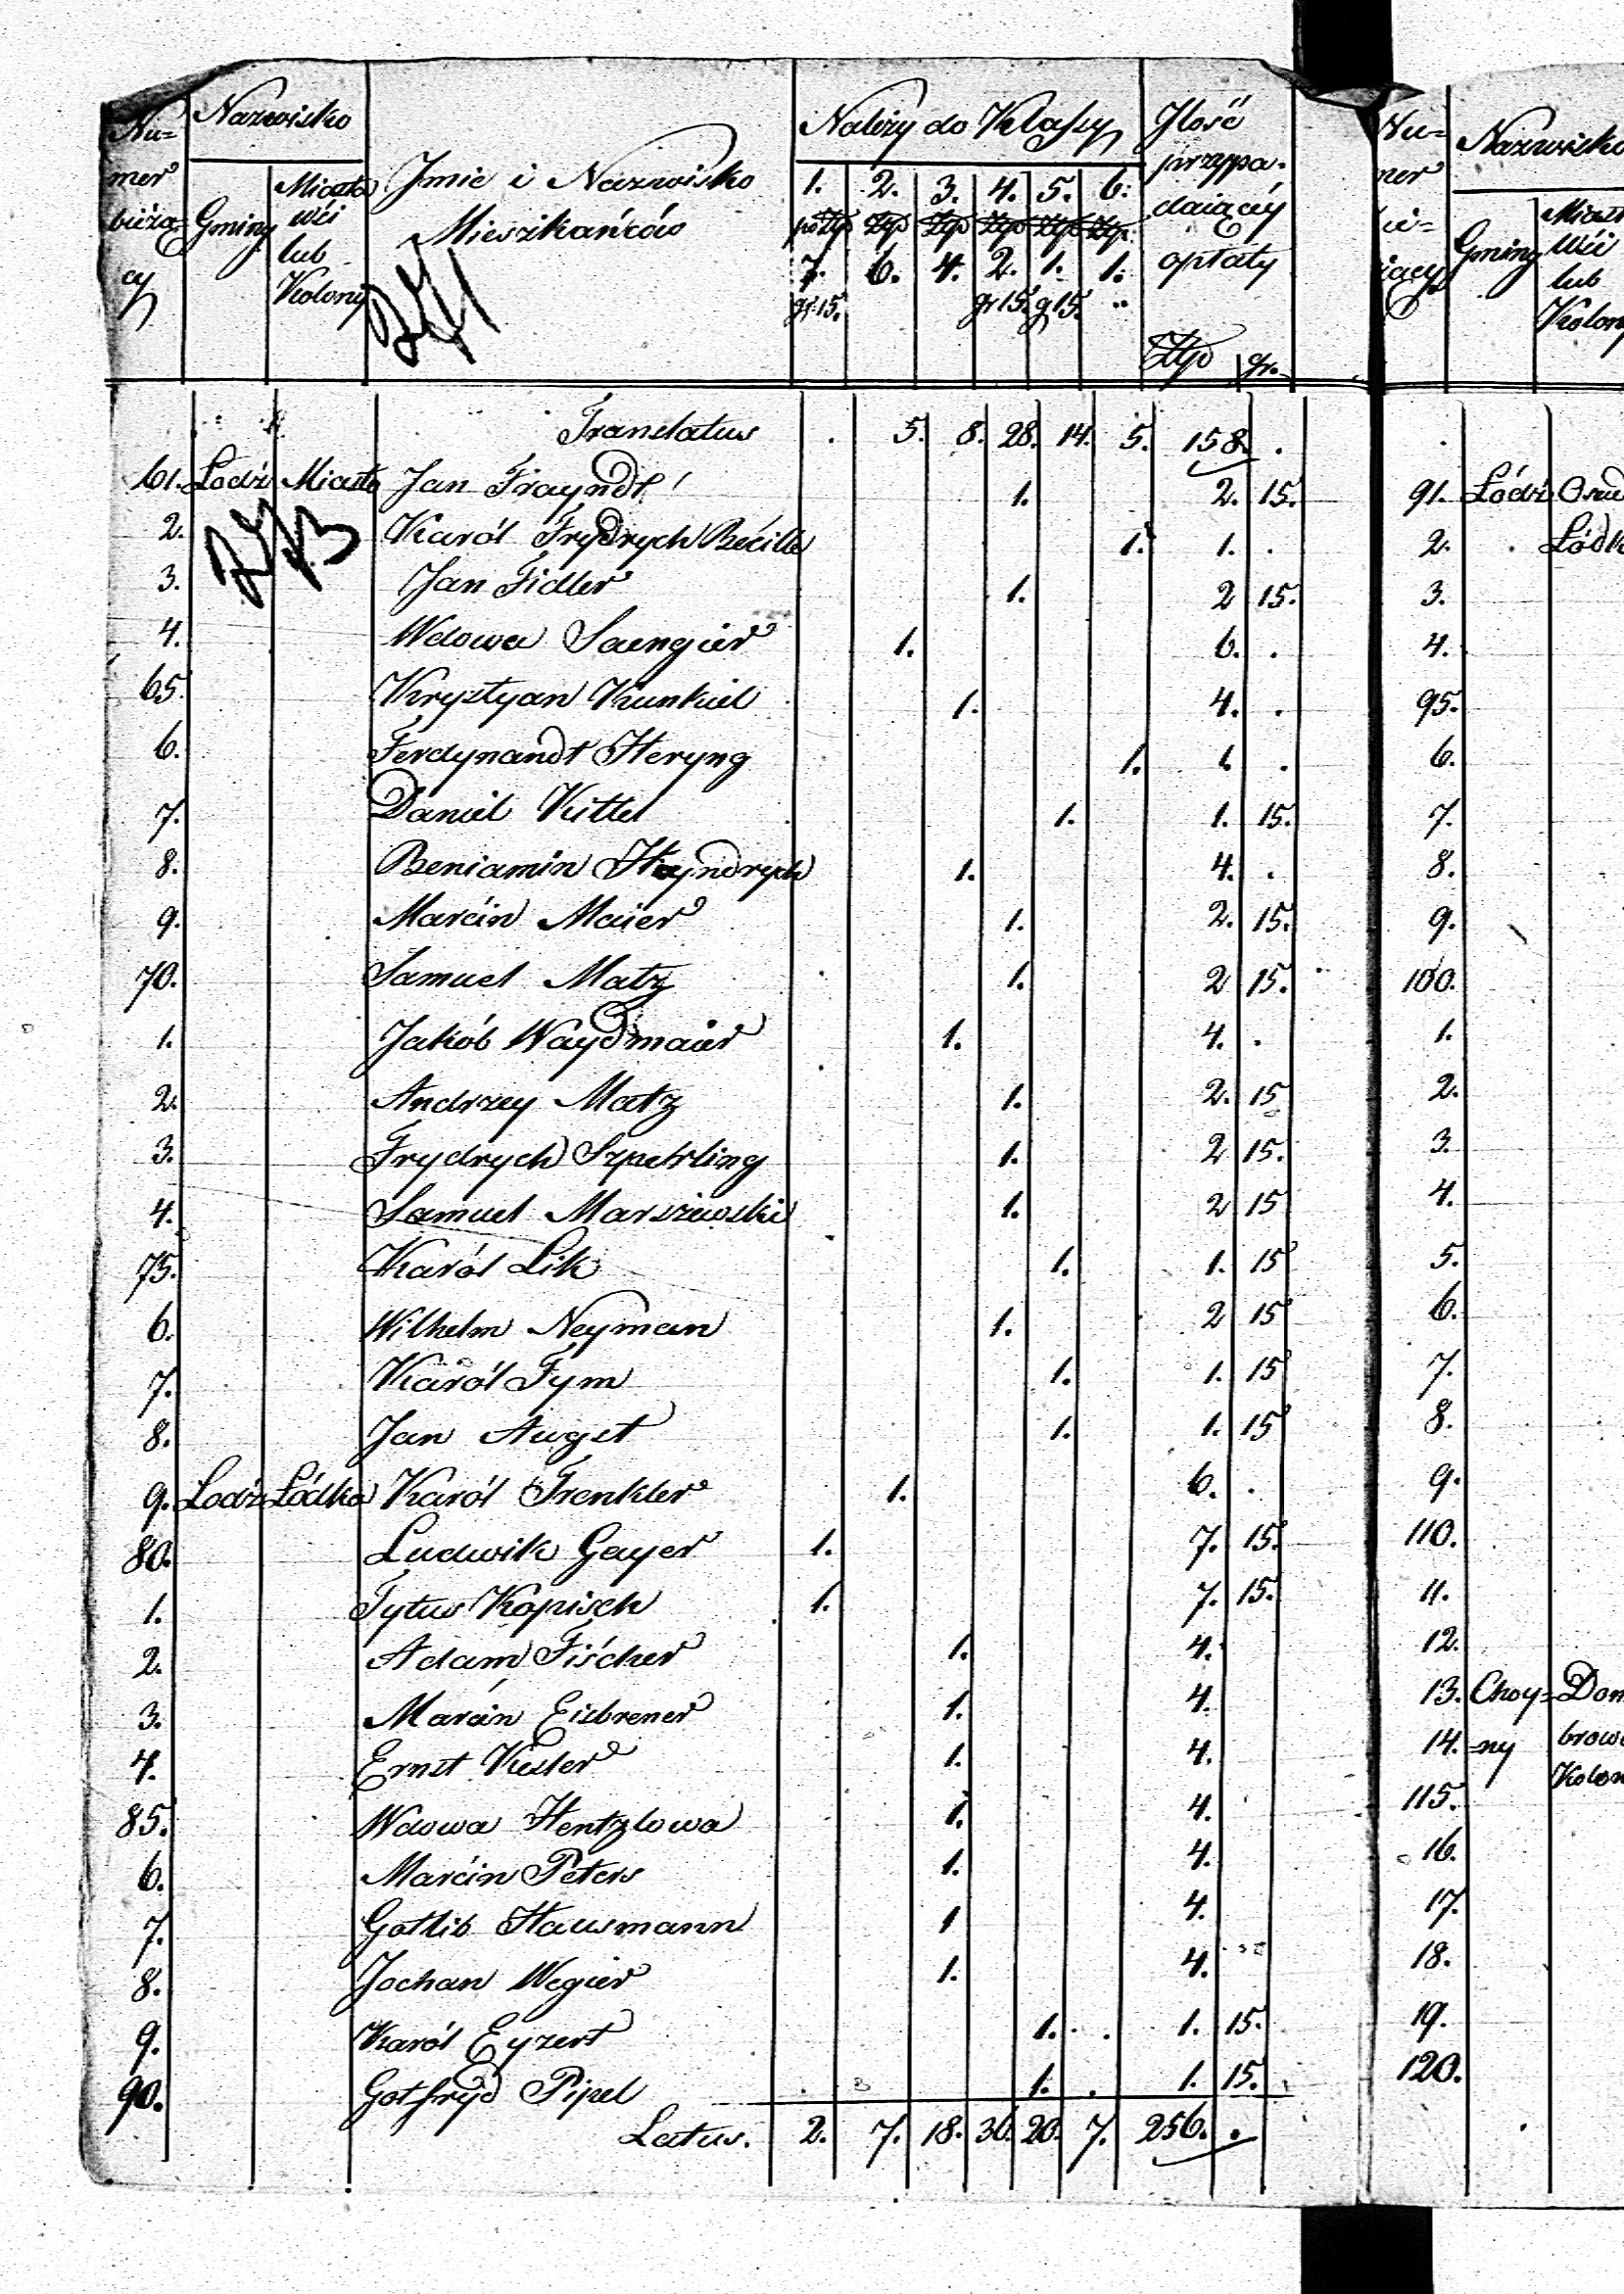 Nu= Nazwisko Imie i Nazwisko Mieszkańców Należy do Klassy Ilość
mer Gminy Miasta 1. 2. 3. 4. 5. 6. przypa-
bieżą= wsi po Złp Złp Złp Złp Złp Złp daiącéy
cy lub 7. 6. 4. 2. 1. 1. opłaty
Kolony gr 15. gr 15. g 15. Złp gr.
Translatus . 5. 8. 28. 14. 5. 158. .
61. Lodź Miasto Jan Frayndl 1. 2. 15.
2. Karól Frydrych 1. 1. .
3. Jan Fidler 1. 2 15.
4. Wdowa Saengier 1. 6. .
65. Krysztyan Kunkiel 1. 4. .
6. Ferdynandt Heryng 1. 1. .
7. Daniel Kittel 1. 1. 15.
8. Beniamin Hayndrych 1. 4. .
9. Marcin Maier 1. 2. 15.
70. Samuel Matz 1. 2 15.
1. Jakób Waydmaier 1. 4. .
2. Andrzey Matz 1. 2. 15
3. Frydrych Szpehrling 1. 2 15.
4. Samuel Marszewski 1. 2 15
75. Karól Lik 1. 1. 15
6. Wilhelm Neyman 1. 2 15
7. Karól Tym 1. 1. 15
8. Jan Augst 1. 1. 15
9. Lodz Lódka Karól Trenkler 1. 6. .
80. Ludwik Geyer 1. 7. 15.
1. Tytus Kopisch 1. 7. 15.
2. Adam Fischer 1. 4.
3. Marcin Eisbrener 1. 4.
4. Ernst Kesler 1. 4.
85. Wdowa Hentzlowa 1. 4.
6. Marcin Peters 1. 4.
7. Gotlib Hausmann 1 4.
8. Jochan Wegier 1. 4.
9. Karól Eyzert 1. . . 1. 15.
90. Gotfryd Pipel 1. . 1. 15.
Latus. 2. 7. 18. 36. 20. 7. 256. .
Nazwisko
Gminy
lub
91. Lódź
2.
3.
4.
95.
6.
7.
8.
9.
100.
1.
2.
3.
4.
5.
6.
7.
8.
9.
110.
11.
12.
13. Choy=
14. =ny
115.
16.
17.
18.
19.
120.